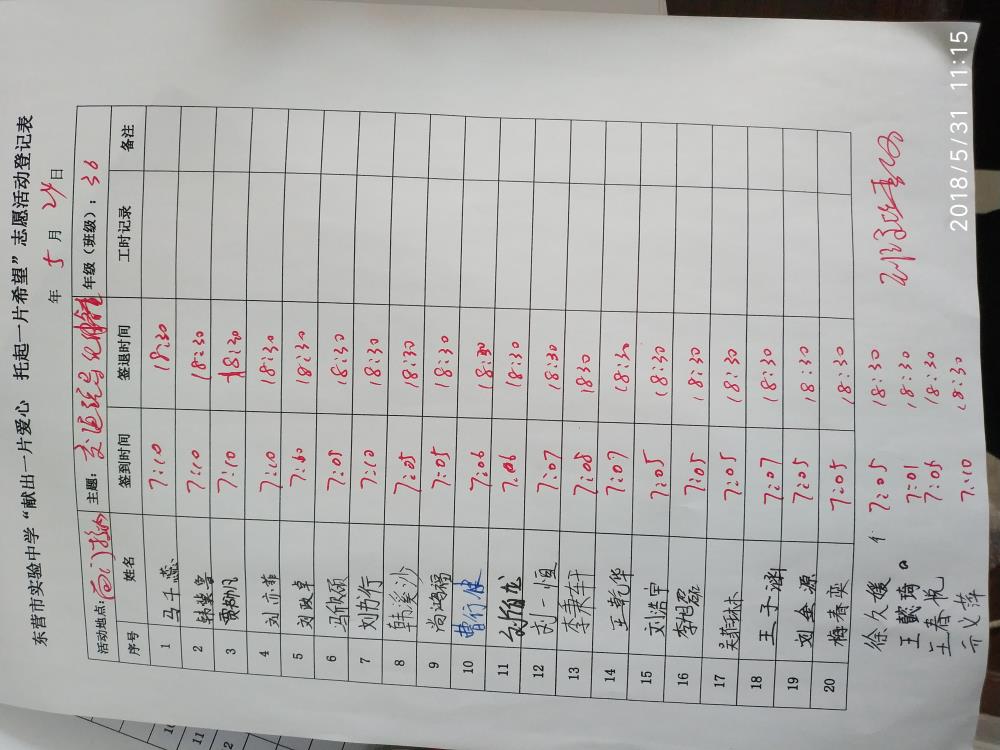 东营市实验中学“献出一片爱心 托起一片希望”志愿活动登记表
年 5 月 24 日
活动地点: 西门 主题: 交通 年级(班级): 36
序号 姓名 签到时间 签退时间 工时记录 备注
1 马千蕊 7:10 18:30
2 韩紫鲁 7:10 18:30
3 贾 凡 7:10 18:30
4 刘亦菲 7:10 18:30
5 刘政卓 7:10 18:30
6 马欣硕 7:05 18:30
7 刘书行 7:10 18:30
8 韩溪沙 7:05 18:30
9 尚鸿福 7:05 18:30
10 曹行健 7:06 18:30
11 7:06 18:30
12 一恒 7:07 18:30
13 李秉轩 7:08 18:30
14 王乾华 7:07 18:30
15 刘浩宇 7:05 18:30
16 李旭磊 7:05 18:30
17 吴菲琳 7:05 18:30
18 王子涵 7:07 18:30
19 刘金源 7:05 18:30
20 梅春奕 7:05 18:30
徐久媛 7:05 18:30
王 琦 7:01 18:30
王春悦 7:06 18:30
义萍 7:10 18:30
2018/5/31 11:15
10
11
2